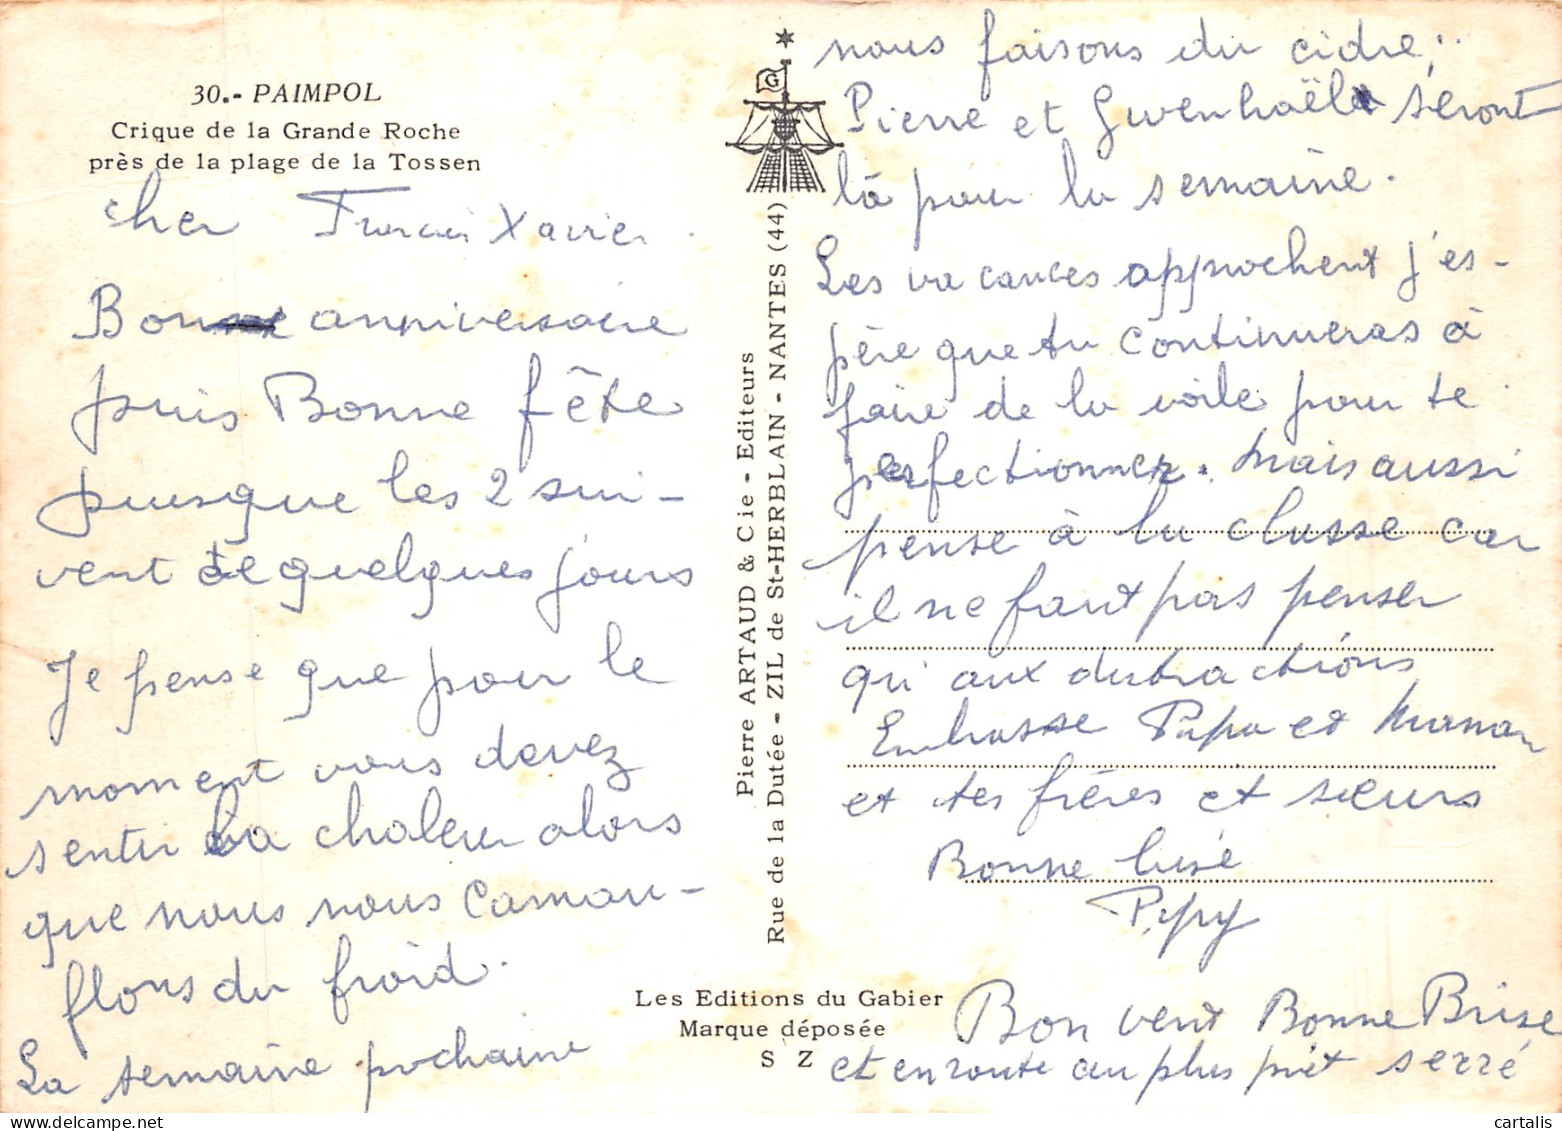 30.- PAIMPOL
Crique de la Grande Roche
près de la plage de la Tossen
cher Francois Xavier.
Bon anniversaire
puis Bonne fête
puisque les 2 sui-
vent de quelques jours
Je pense que pour le
moment vous devez
sentir la chaleur alors
que nous nous camou-
flons du froid.
La semaine prochaine
nous faisons du cidre;
Pierre et Gwenhaël seront
là pour la semaine.
Les vacances approchent j'es-
père que tu continueras à
faire de la voile pour te
perfectionner. Mais aussi
pense à la classe car
il ne faut pas penser
qu'aux distractions
Embrasse Papa et Maman
et tes frères et sœurs
Bonne bise
Papy
Bon vent Bonne Brise
et en route au plus prêt serré
Pierre ARTAUD & Cie - Editeurs
Rue de la Dutée - ZIL de St-HERBLAIN - NANTES (44)
G
Les Editions du Gabier
Marque déposée
S Z
cartalis